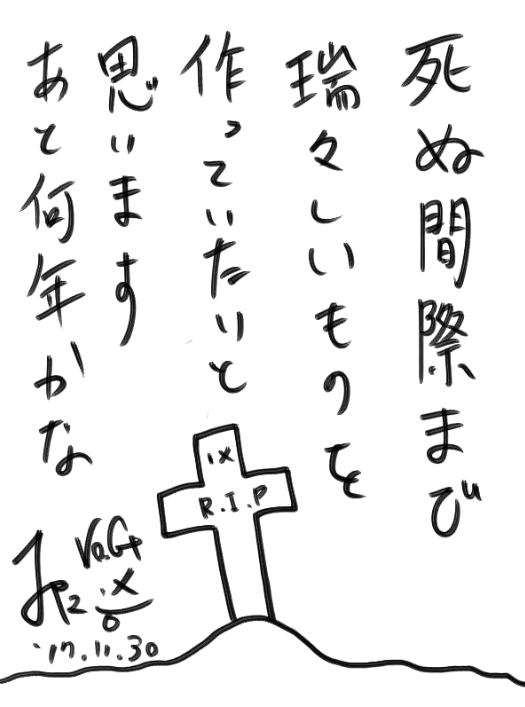 死ぬ間際まび
瑞々しいものを
作っていたりと
思います
あと何年かな
.x
R.I.P
'17.11.30